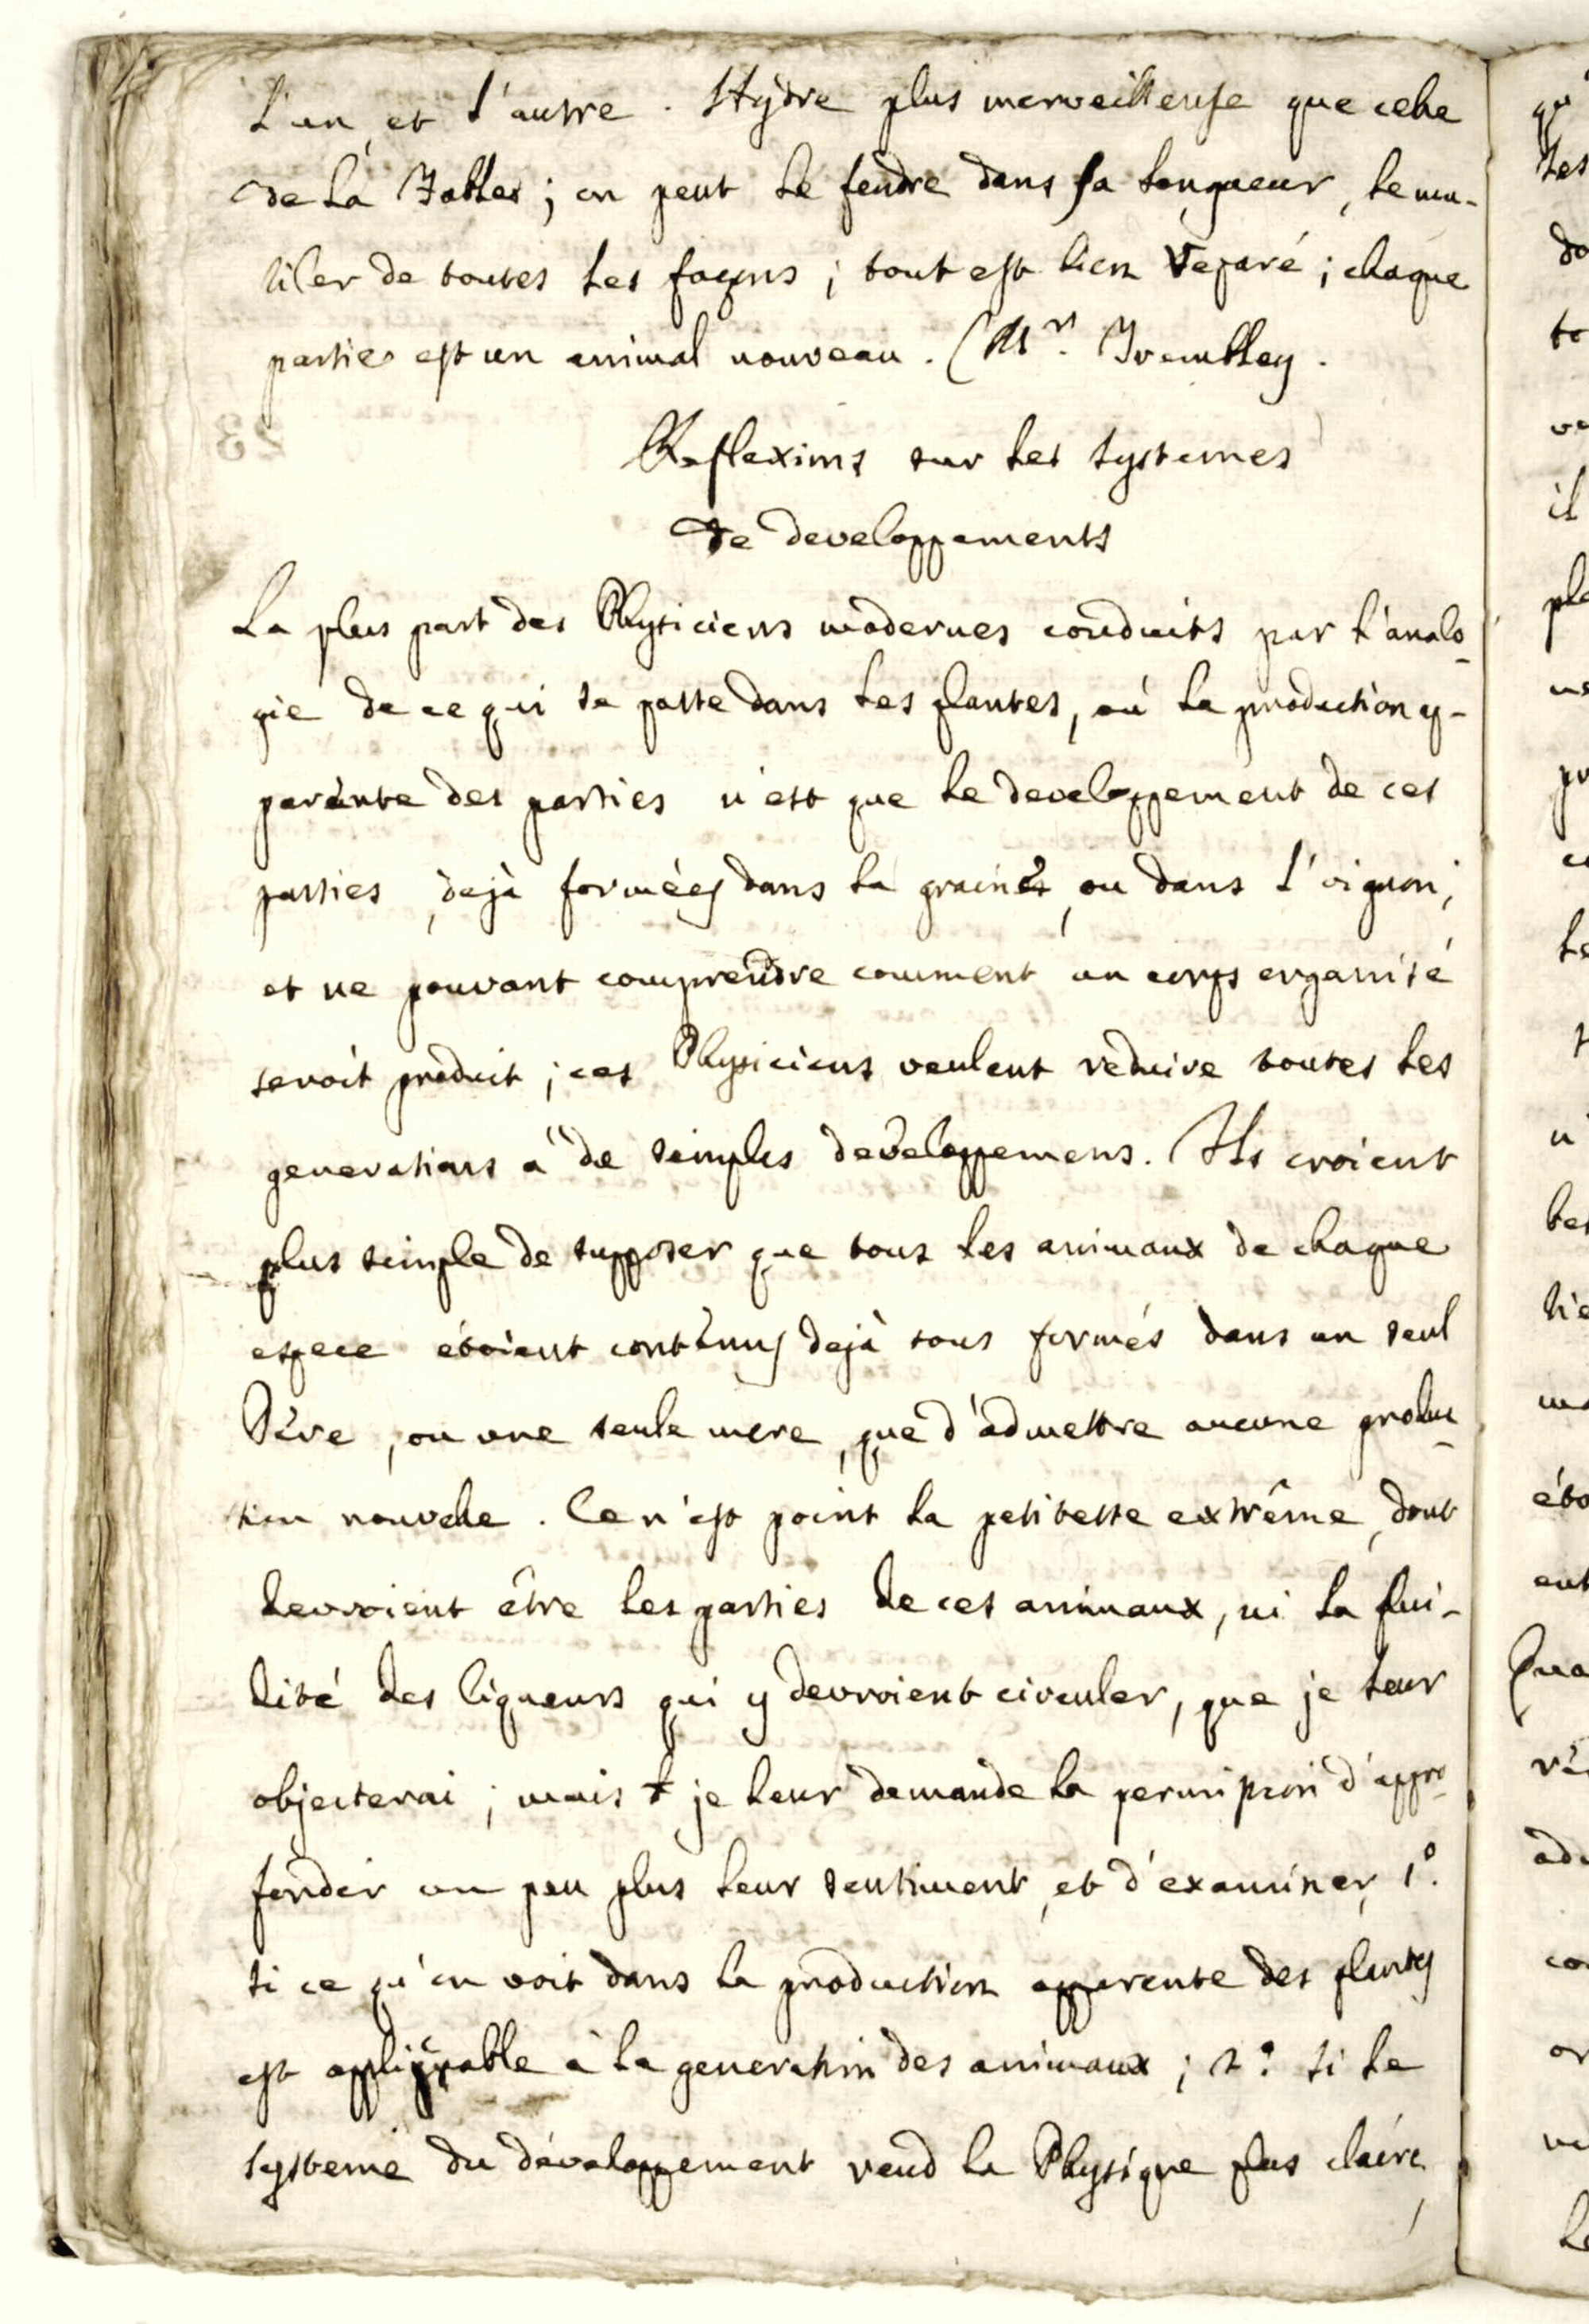 L'un et l'autre. Hydre plus merveilleuse que celle
de la Fables ; on peut le fendre dans sa longueur, le mu-
tiler de toutes les façons ; tout est bien reparé ; chaque
partie est un animal nouveau. (Mr. Trembley.
Reflexions sur les systemes
de developpements
La plus part des Physiciens modernes conduits par l'analo-
gie de ce qui se passe dans les plantes, où la production ap-
parente des parties n'est que le developpement de ces
parties, dejà formées dans la graine, ou dans l'oignon,
et ne pouvant comprendre comment un corps organisé
seroit produit ; ces Physiciens veulent reduire toutes les
generations à de simples developpemens. Ils croient
plus simple de supposer que tous les animaux de chaque
espece étoient contenus dejà tous formés dans un seul
Père, ou une seule mere, que d'admettre aucune produc-
tion nouvelle. Ce n'est point la petitesse extrême, dont
devroient être les parties de ces animaux, ni la flui-
dité des liqueurs qui y devroient circuler, que je leur
objecterai ; mais je leur demande la permission d'appro-
fondir un peu plus leur sentiment, et d'examiner, 1º.
si ce qu'on voit dans la production apparente des plantes
est applicable à la generation des animaux ; 2º. si le
systeme du développement rend la Physique plus claire,